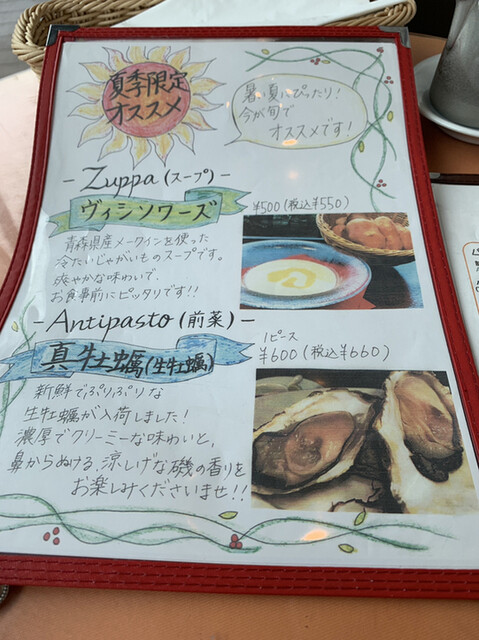 夏季限定
オススメ
暑い夏にぴったり!
今が旬で
オススメです!
- Zuppa (スープ) -
ヴィシソワーズ
¥500 (税込¥550)
青森県産メークインを使った
冷たいじゃがいものスープです。
爽やかな味わいで、
お食事前にピッタリです!!
- Antipasto (前菜) -
真牡蠣(生牡蠣)
1ピース
¥600 (税込¥660)
新鮮でぷりぷりな
生牡蠣が入荷しました!
濃厚でクリーミーな味わいと、
鼻からぬける、涼しげな磯の香りを
お楽しみくださいませ!!